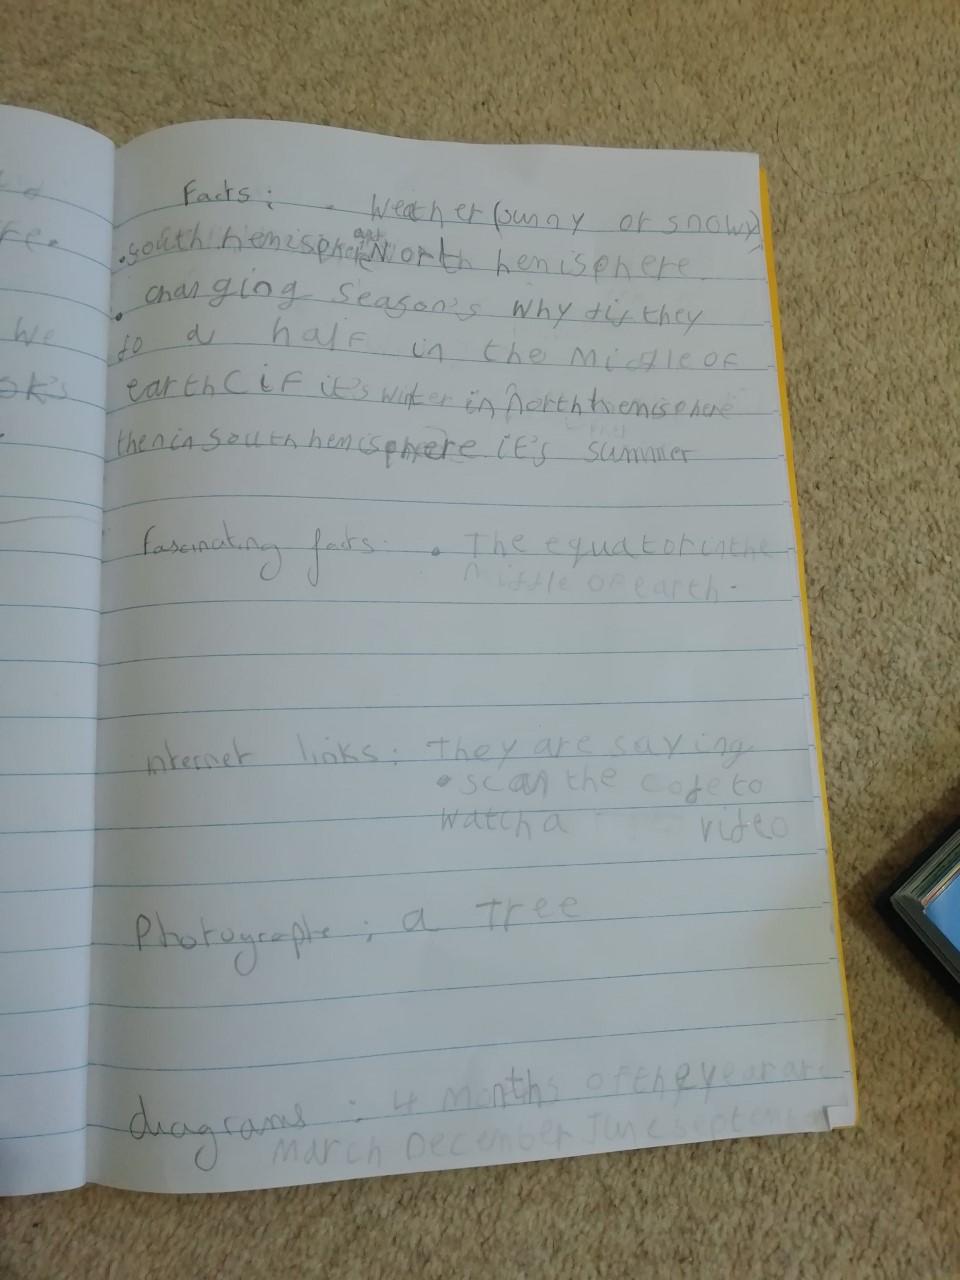 Facts: - Weather (sunny or snowy)
. south hemisphere and North hemisphere
. changing season's why did they
do a half in the middle of
earth ( if it's winter in north hemisphere
then in south hemisphere it's summer
fascinating facts. . The equator in the
middle of earth.
internet links: they are saying
. scan the code to
watch a video
Photographs: a tree
diagrams: 4 months of the year are
march December June september
fe.
we
ok's